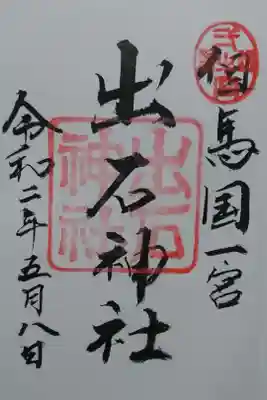 但馬国一宮
出石神社
令和二年五月八日
出石
神社